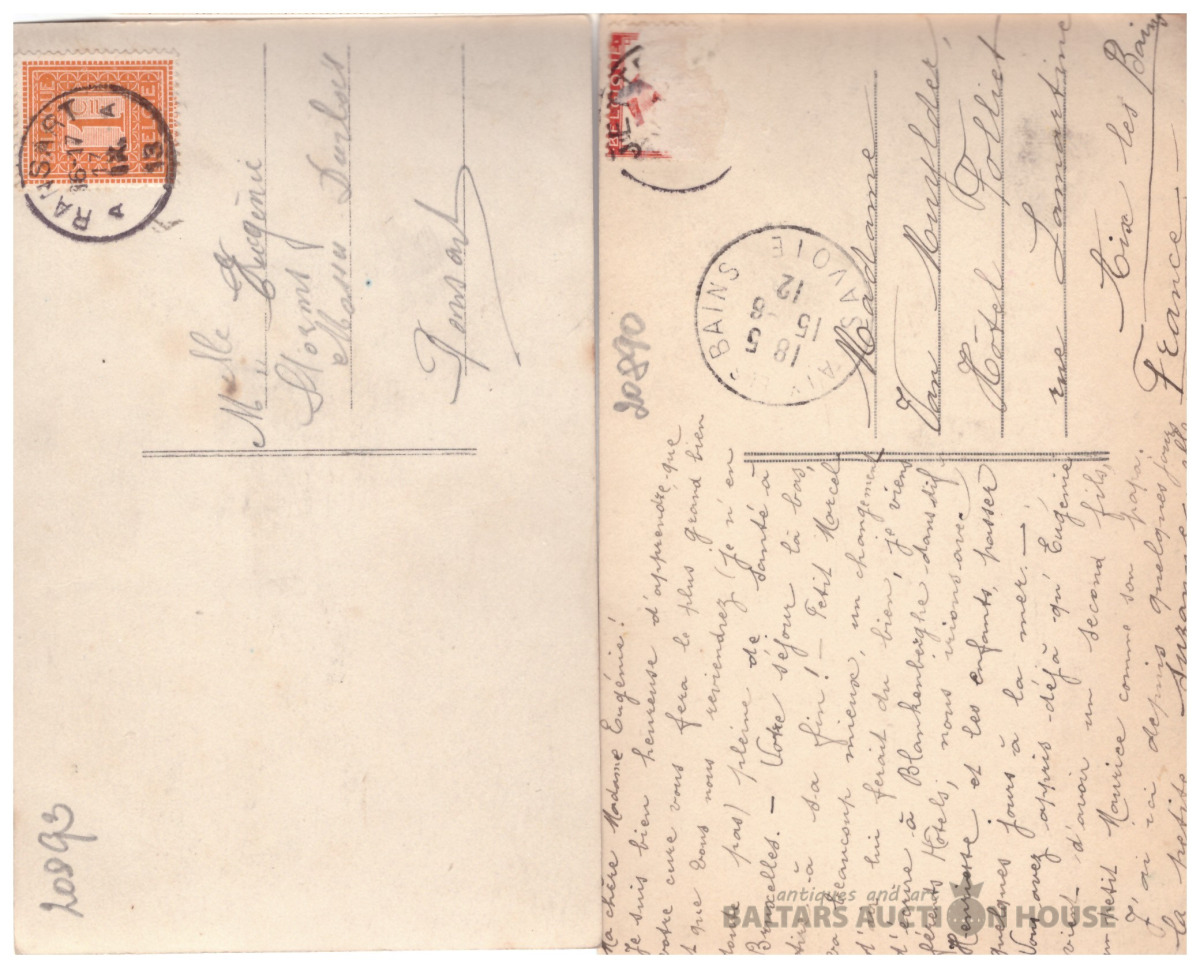 BELGIQUE
1
BELGIE
RANSART
16-17
17
IX
13
A A
Melle Eugénie
Storms
Ransart
20893
BELGIQUE
BAINS
SAVOIE
12
15 8
18
Madame
Van Muylder
Hôtel Folliet
rue Lamartine
Aix les Bains
France
20890
Ma chère Madame Eugénie!
Je suis bien heureuse d'apprendre que
votre cure vous fera le plus grand bien
et que vous nous reviendrez (je n'en
doute pas) pleine de santé à
Bruxelles. — Votre séjour là bas,
tire à sa fin! — Petit Marcel
va beaucoup mieux, un changement
d'air lui ferait du bien, je viens
d'écrire à Blankenberghe dans dif
férents Hôtels, nous irions avec
et les enfants, passer
quelques jours à la mer. —
Vous avez appris déjà qu'Eugénie
vient d'avoir un second fils,
un petit Maurice comme son papa.
J'ai ici depuis quelques jours
la petite Suzanne
antiques and art
BALTARS AUCTION HOUSE